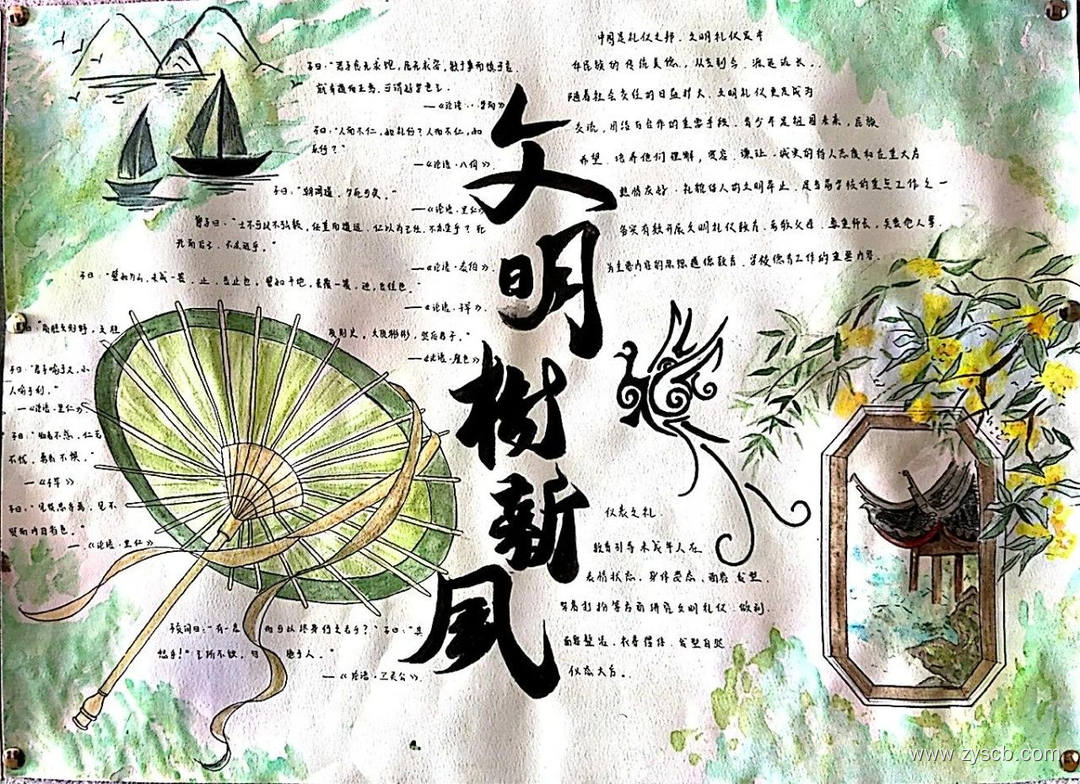 文明樹新风
中国是礼仪之邦，文明礼仪是中
华民族的传统美德，从古到今，源远流长。
随着社会交往的日益扩大，文明礼仪更是成为
交流，团结与合作的重要手段。青少年是祖国未来，民族
希望，培养他们理解，宽容，谦让，诚实的待人态度和庄重大方
热情友好，礼貌待人的文明举止，是当前学校的重点工作之一
切实有效开展文明礼仪教育，孝敬父母，尊重师长，关爱他人等
为主要内容的思想道德教育，学校德育工作的重要内容。
子曰："君子食无求饱，居无求安，敏于事而慎于言，
就有道而正焉，可谓好学也已。
——《论语·学而》
子曰："人而不仁，如礼何？人而不仁，如
乐何？"
——《论语·八佾》
子曰："朝闻道，夕死可矣。"
——《论语·里仁》
曾子曰："士不可以不弘毅，任重而道远。仁以为己任，不亦重乎？死
而后已，不亦远乎。"
——《论语·泰伯》
子曰："譬如为山，未成一篑，止，吾止也。譬如平地，虽覆一篑，进，吾往也。"
——《论语·子罕》
曰："质胜文则野，文胜
质则史，文质彬彬，然后君子。"
——《论语·雍也》
子曰："君子喻于义，小
人喻于利。"
——《论语·里仁》
子曰："知者不惑，仁者
不忧，勇者不惧。"
——《子罕》
子曰："见贤思齐焉，见不
贤而内自省也。"
——《论语·里仁》
子贡问曰："有一言 而可以终身行之者乎？"子曰："其
恕乎！己所不欲，勿 施于人。"
——《论语·卫灵公》
仪表之礼，
教育引导未成年人在
表情状态，身体姿态，面容发型，
穿着打扮等方面讲究文明礼仪，做到
面容整洁，衣着得体，发型自然
仪态大方。
www.zyscb.com